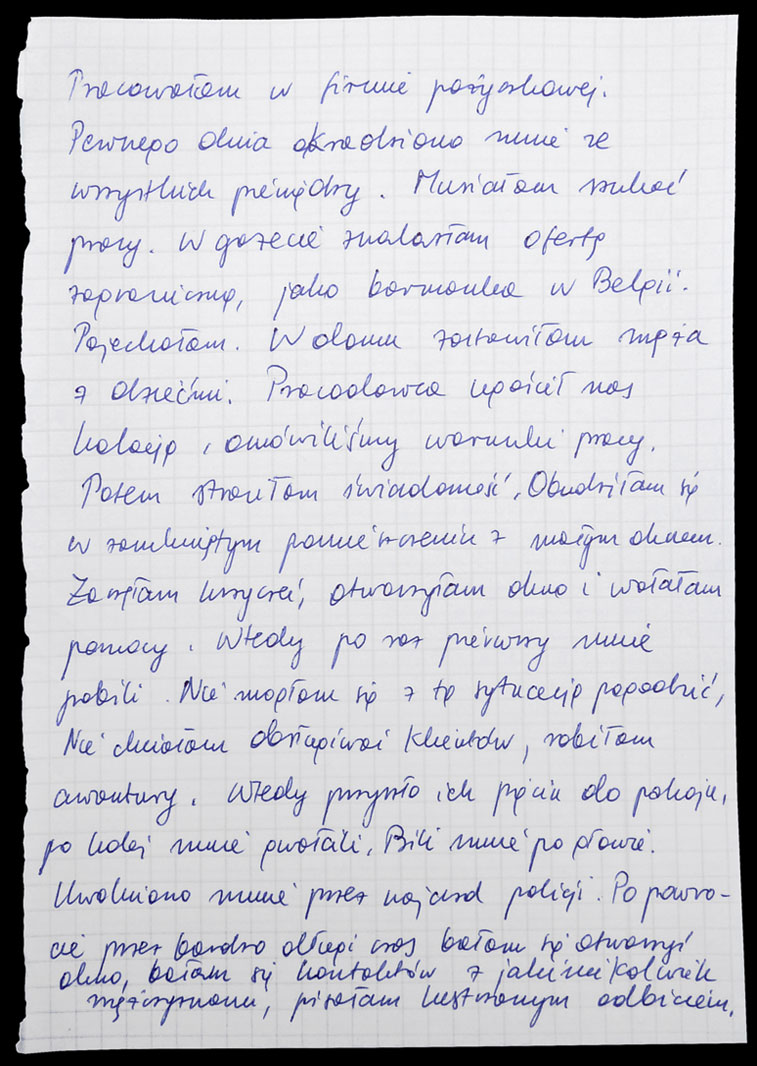 Pracowałam w firmie pożyczkowej.
Pewnego dnia okradziono mnie ze
wszystkich pieniędzy. Musiałam szukać
pracy. W gazecie znalazłam ofertę
zagraniczną, jako barmanka w Belgii.
Pojechałam. W domu zostawiłam męża
z dziećmi. Pracodawca ugościł nas
kolacją, omówiliśmy warunki pracy.
Potem straciłam świadomość. Obudziłam się
w zamkniętym pomieszczeniu z małym oknem.
Zaczęłam krzyczeć, otworzyłam okno i wołałam
pomocy. Wtedy po raz pierwszy mnie
pobili. Nie mogłam się z tą sytuacją pogodzić,
Nie chciałam obsługiwać klientów, robiłam
awantury. Wtedy przyszło ich pięciu do pokoju,
po kolei mnie gwałcili. Bili mnie po głowie.
Uwolniono mnie przez najazd policji. Po powro-
cie przez bardzo długi czas bałam się otworzyć
okno, bałam się kontaktów z jakimikolwiek
mężczyznami, pisałam lustrzanym odbiciem.